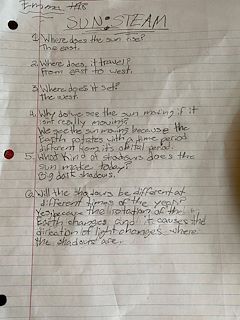 SUN: STEAM
1. Where does the sun rise?
The east.
2. Where does it travel?
From east to west.
3. Where does it set?
The west.
4. Why do we see the sun moving if it
isnt really moving?
We see the sun moving because the
Earth rotates with a time period
different from its orbital period.
5. What kind of shadows does the
sun make today?
Big dark shadows.
6. Will the shadows be different at
different times of the year?
Yes, because the rotation of the
Earth changes and it causes the
direction of light changes where
the shadows are.